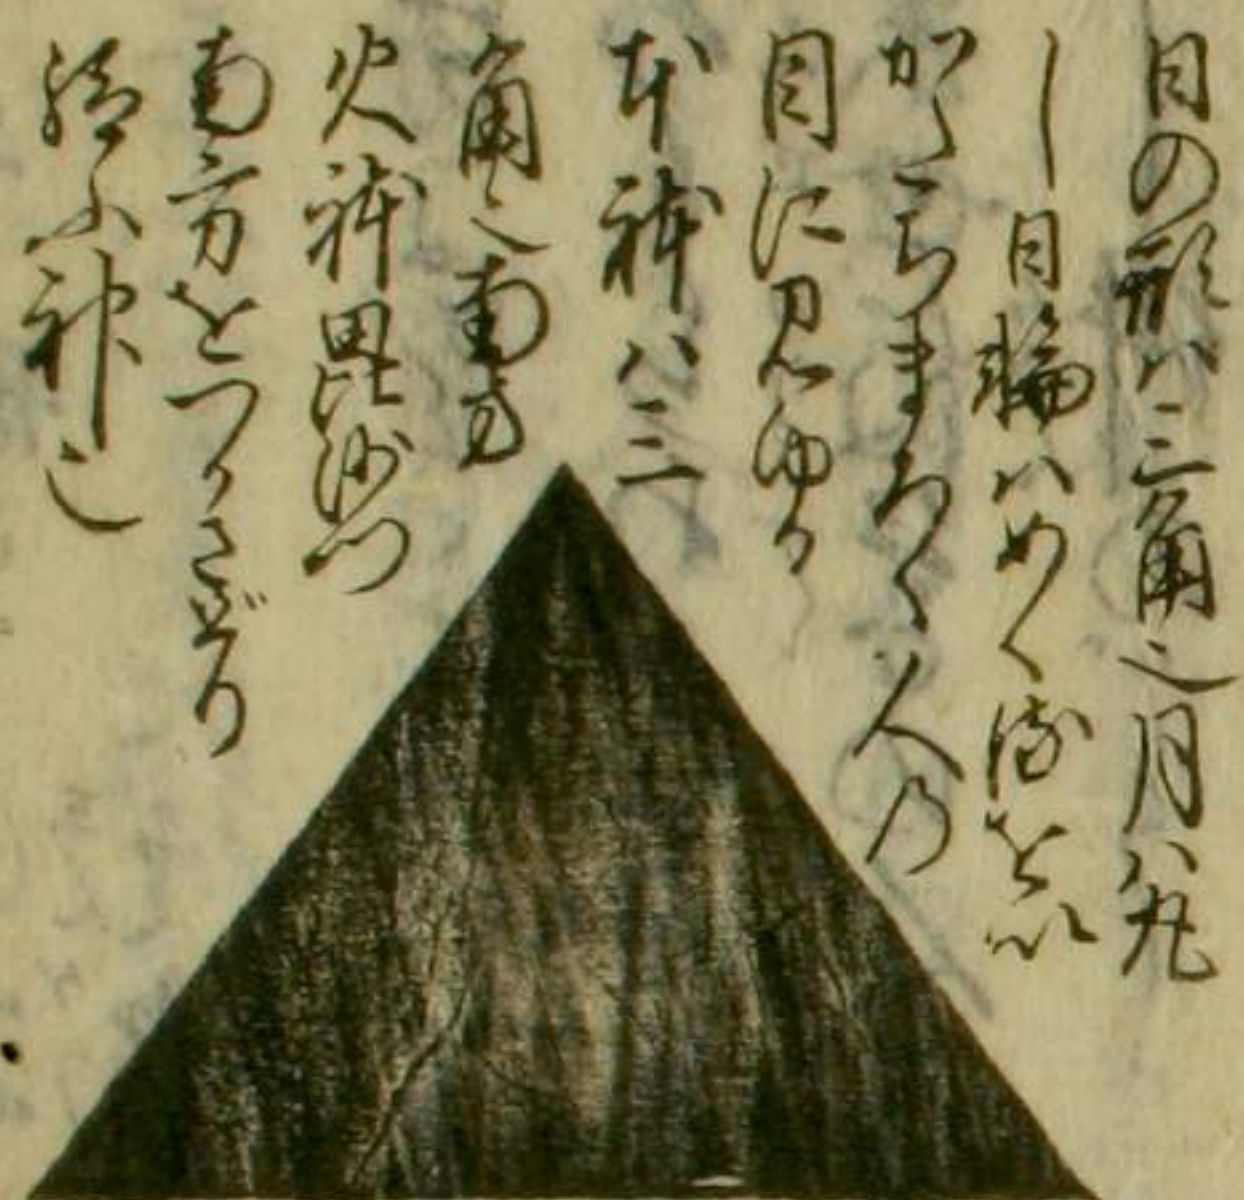 日の形ハ三角也月ハ丸
し日輪ハめくるをい
かたちまろく人の
目に見ゆる
本躰ハ三
角也南方
火躰毘沙門
南方をつかさどり
給ふ神也